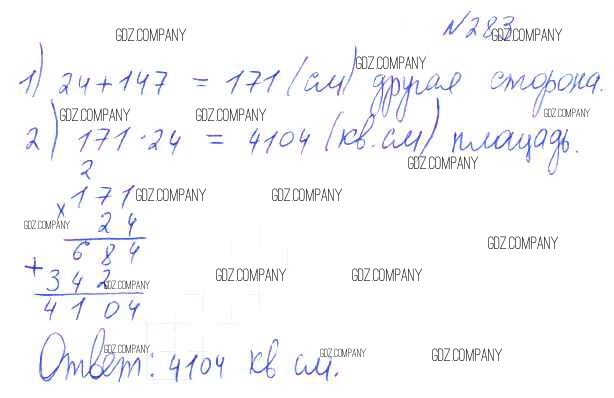 №283
GDZ.COMPANY GDZ.COMPANY
GDZ.COMPANY
1) 24+147 = 171 (см) другая сторона.
GDZ.COMPANY GDZ.COMPANY GDZ.COMPANY
2) 171·24 = 4104 (кв.см) площадь.
GDZ.COMPANY
2
171 GDZ.COMPANY GDZ.COMPANY
× 24 GDZ.COMPANY
684 GDZ.COMPANY
+ 342 GDZ.COMPANY GDZ.COMPANY GDZ.COMPANY
4104
GDZ.COMPANY GDZ.COMPANY GDZ.COMPANY
Ответ: 4104 кв см.